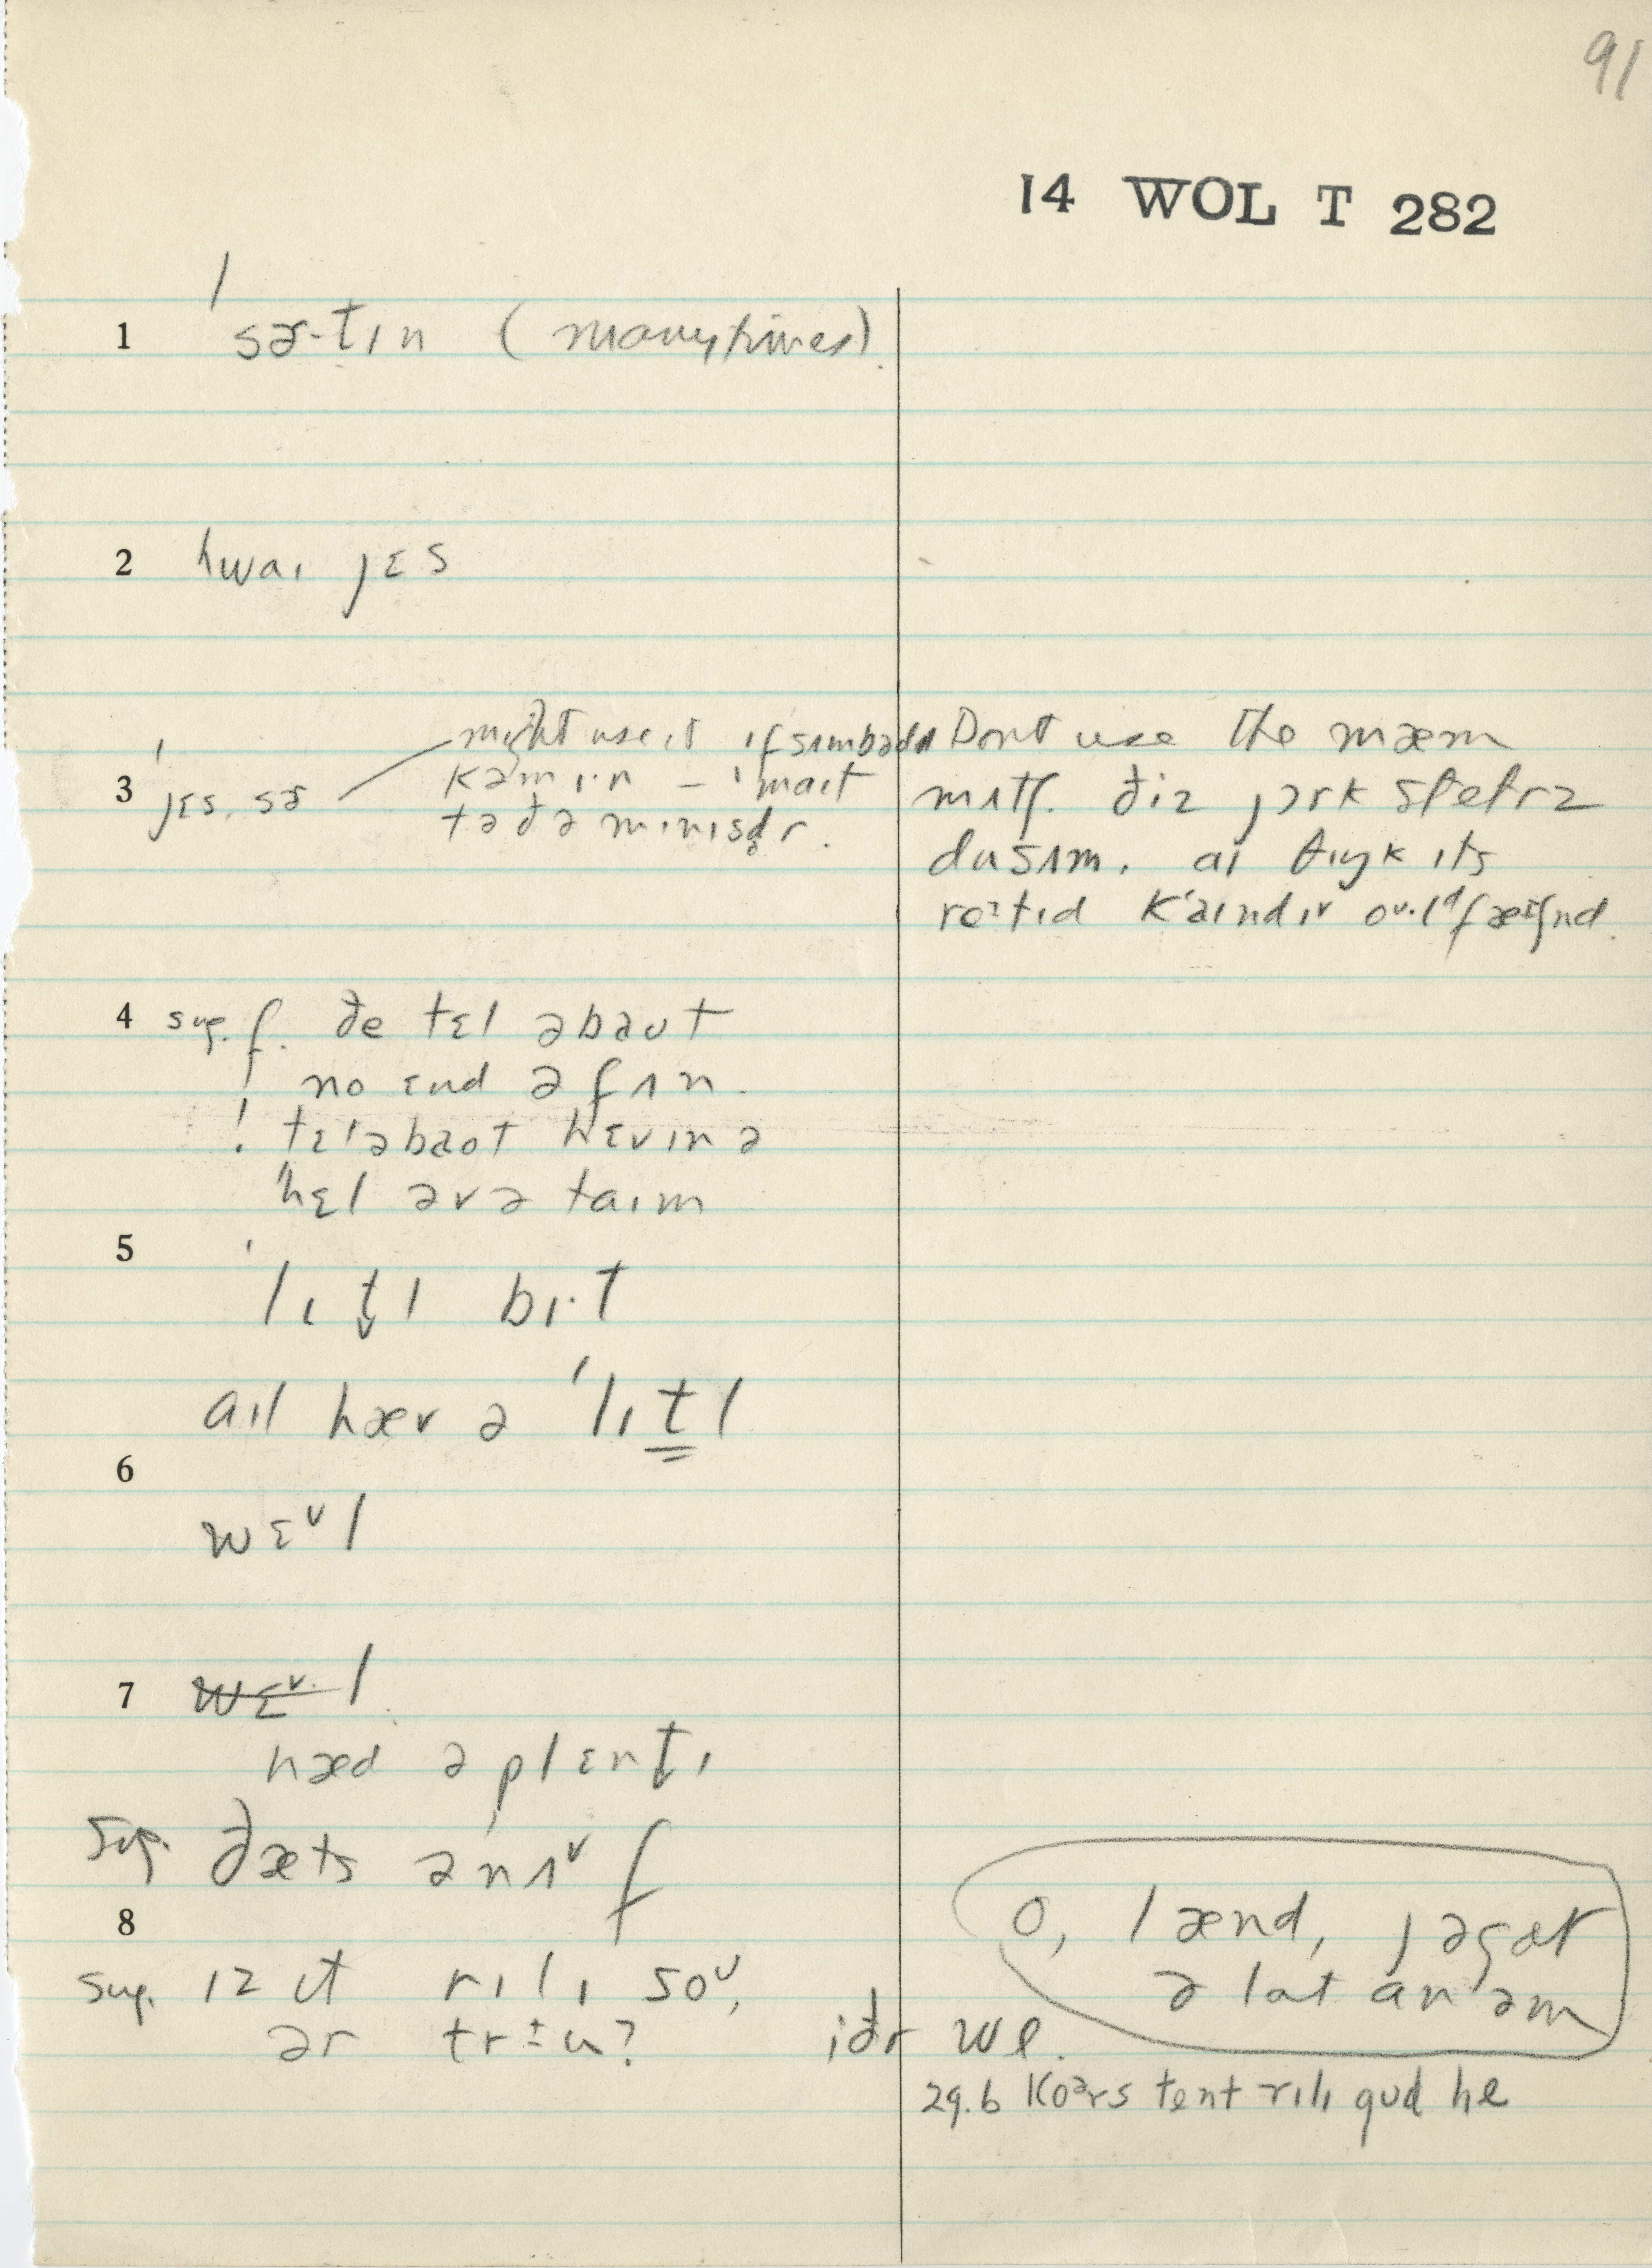 91
14 WOL T 282
1 ˈsɚ-tɪn (many times)
2 hwaɪ jɛs
3 ˈjɛs, sɚ
might use it ɪf sʌmbədɪ
kəm ɪ·n – ˈmaɪt
tə ðə mɪnɪsd̥r.
Dont use the mæm
mʌtʃ. ðiz jɔrk stetrz
du sʌm. aɪ θɪŋk ɪts
kʼaɪnd ɪv
4 sug. f. ðe tɛl əbaut
! no ɛnd ə fʌn.
! tɛl əbaot hɛvɪn ə
ˈhɛl əv ə taɪm
5
ˈlɪt̬l bɪ·t
aɪl hæv ə ˈlɪt̳l
6
wɛᵛl
7 wɛᵛ·l
hæd ə plɛnt̬ɪ
sug. ðæts ənʌᵛf
8
sug. ɪz ɪt rɪlɪ soᵁ,
ər trɨu? iðr we.
o, lænd, jə gɑt
ə lɑt ɑn əm
29.6 koᵊrs tent rɪlɪ gud he